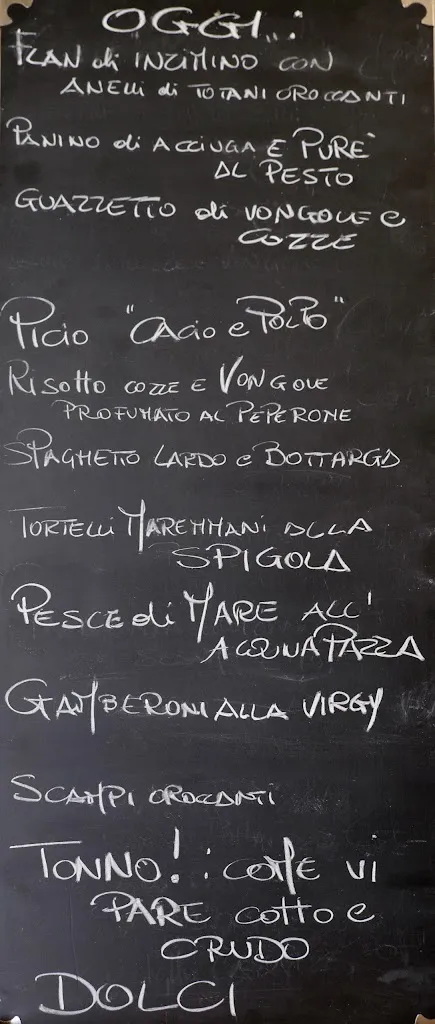 OGGI..:
FLAN di INZIMINO CON
ANELLI di TOTANI CROCCANTI
PANINO di ACCIUGA E PURE'
AL PESTO
GUAZZETTO di VONGOLE e
COZZE
PICIO "CACIO e POLPO"
RISOTTO COZZE E VONGOLE
PROFUMATO AL PEPERONE
SPAGHETTO LARDO e BOTTARGA
TORTELLI MAREMMANI ALLA
SPIGOLA
PESCE di MARE ALL'
ACQUAPAZZA
GAMBERONI ALLA VIRGY
SCAMPI CROCCANTI
TONNO!: COME VI
PARE COTTO e
CRUDO
DOLCI